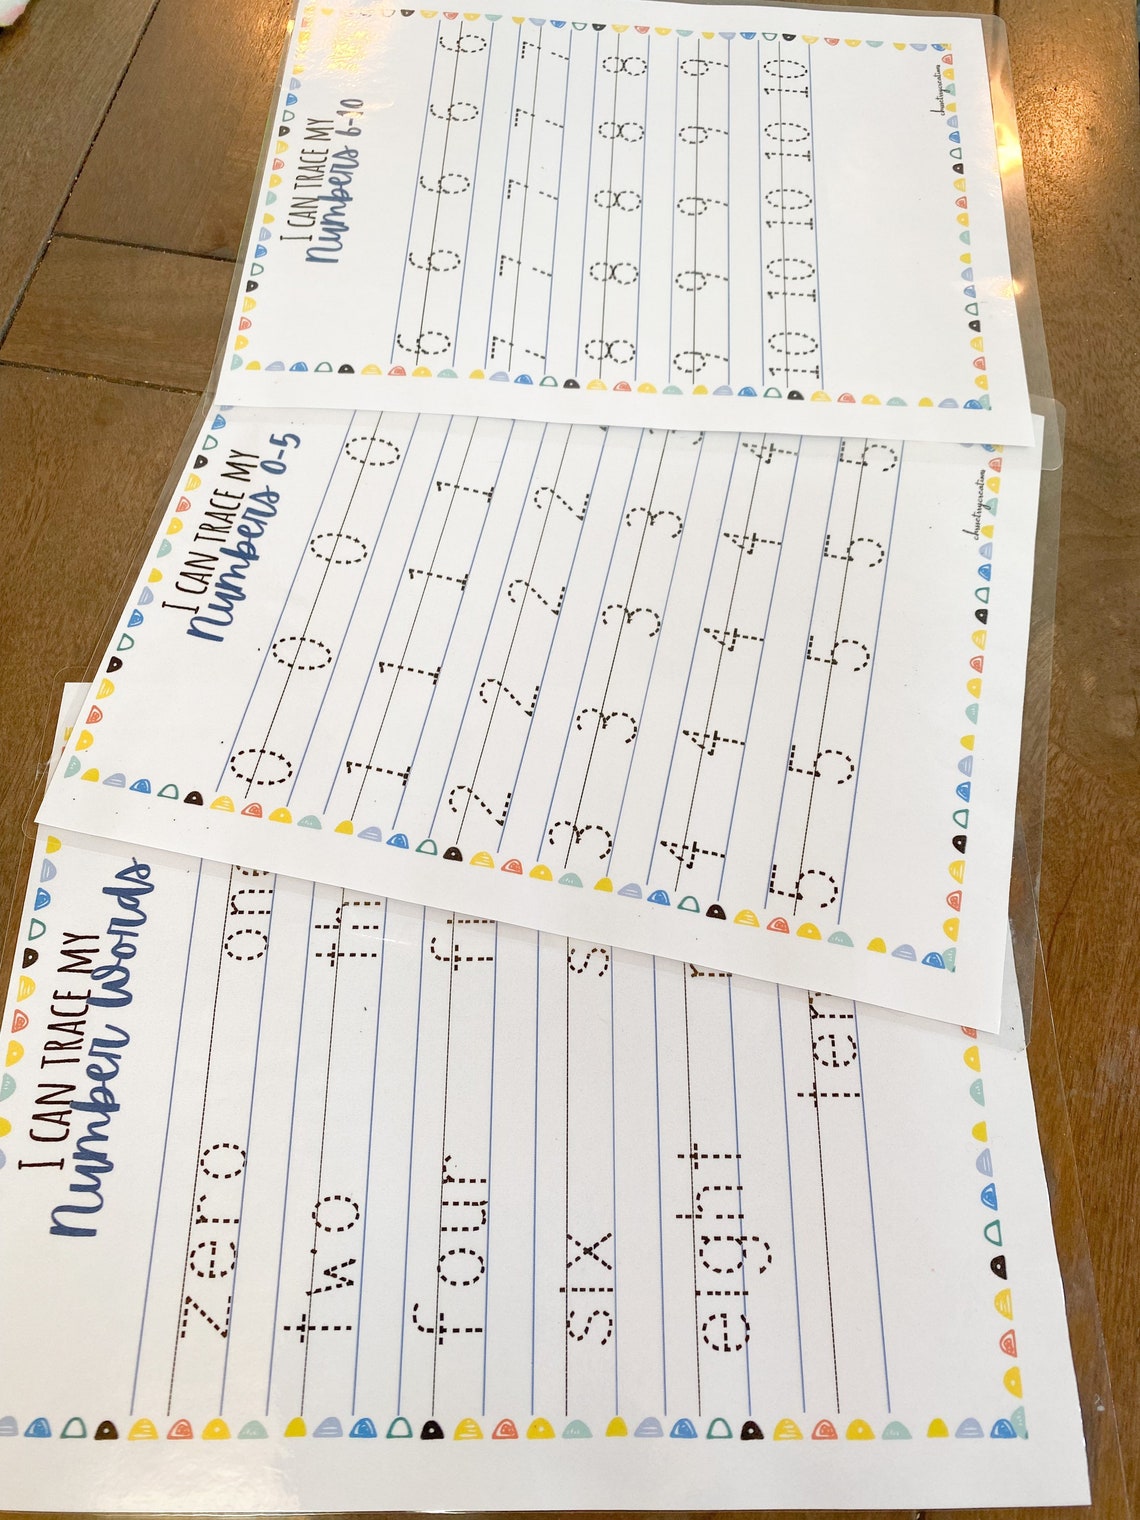 I CAN TRACE MY
Numbers 6-10
6 6 6 6 6
7 7 7 7 7
8 8 8 8 8
9 9 9 9 9
10 10 10 10 10
I CAN TRACE MY
Numbers 0-5
0 0 0 0
1 1 1 1
2 2 2 2
3 3 3 3
4 4 4 4 4
5 5 5 5 5
I CAN TRACE MY
Number Words
zero one
two th
four
six s
eight
ten